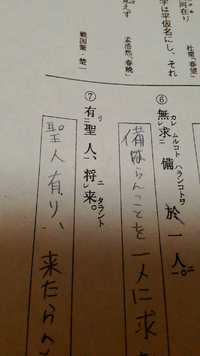 杜甫、春望
河在り
字は平仮名にし、それ
えず 孟浩然、春暁
⑥ 無カレ求ムルコト備ハランコトヲ於一人ニ。
備はらんことを一人に求
戦国策・楚一
⑦ 有リ聖人、将ニ来タラント。
聖人有り、来たらんと